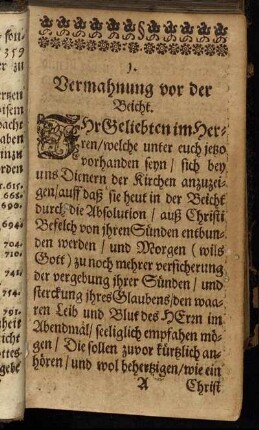 1.
Vermahnung vor der
Beicht.
IHr Geliebten im Her-
ren/ welche unter euch jetzo
vorhanden seyn / sich bey
uns Dienern der Kirchen anzuzei-
gen/ auff daß sie heut in der Beicht
durch die Absolution / auß Christi
Befelch von jhren Sünden entbun-
den werden / und Morgen (wils
Gott) zu noch mehrer versicherung
der vergebung jhrer Sünden / und
sterckung jhres Glaubens/ den waa-
ren Leib und Blut des HErrn im
Abendmal/ seeliglich empfahen mö-
gen / Die sollen zuvor kürtzlich an-
hören / und wol behertzigen/ wie ein
A Christ
son-
359
er zu
615.
665.
690.
694.
704.
710.
741.
754.
791.